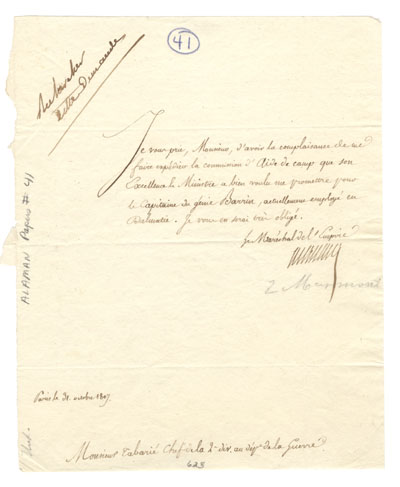 41
cette Demande
Je vous prie, Monsieur, d'avoir la complaisance de me
faire expédier la commission d'Aide de camp que son
Excellence le Ministre a bien voulu me promettre pour
le Capitaine du génie Barrin, actuellement employé en
Dalmatie. Je vous en serai très obligé.
Le Maréchal de l'Empire
Marmont
ALAMAN Papers # 41
Paris le 31 octobre 1807
Monsieur Tabarié Chef de la 2e div. au dép. de la Guerre
623